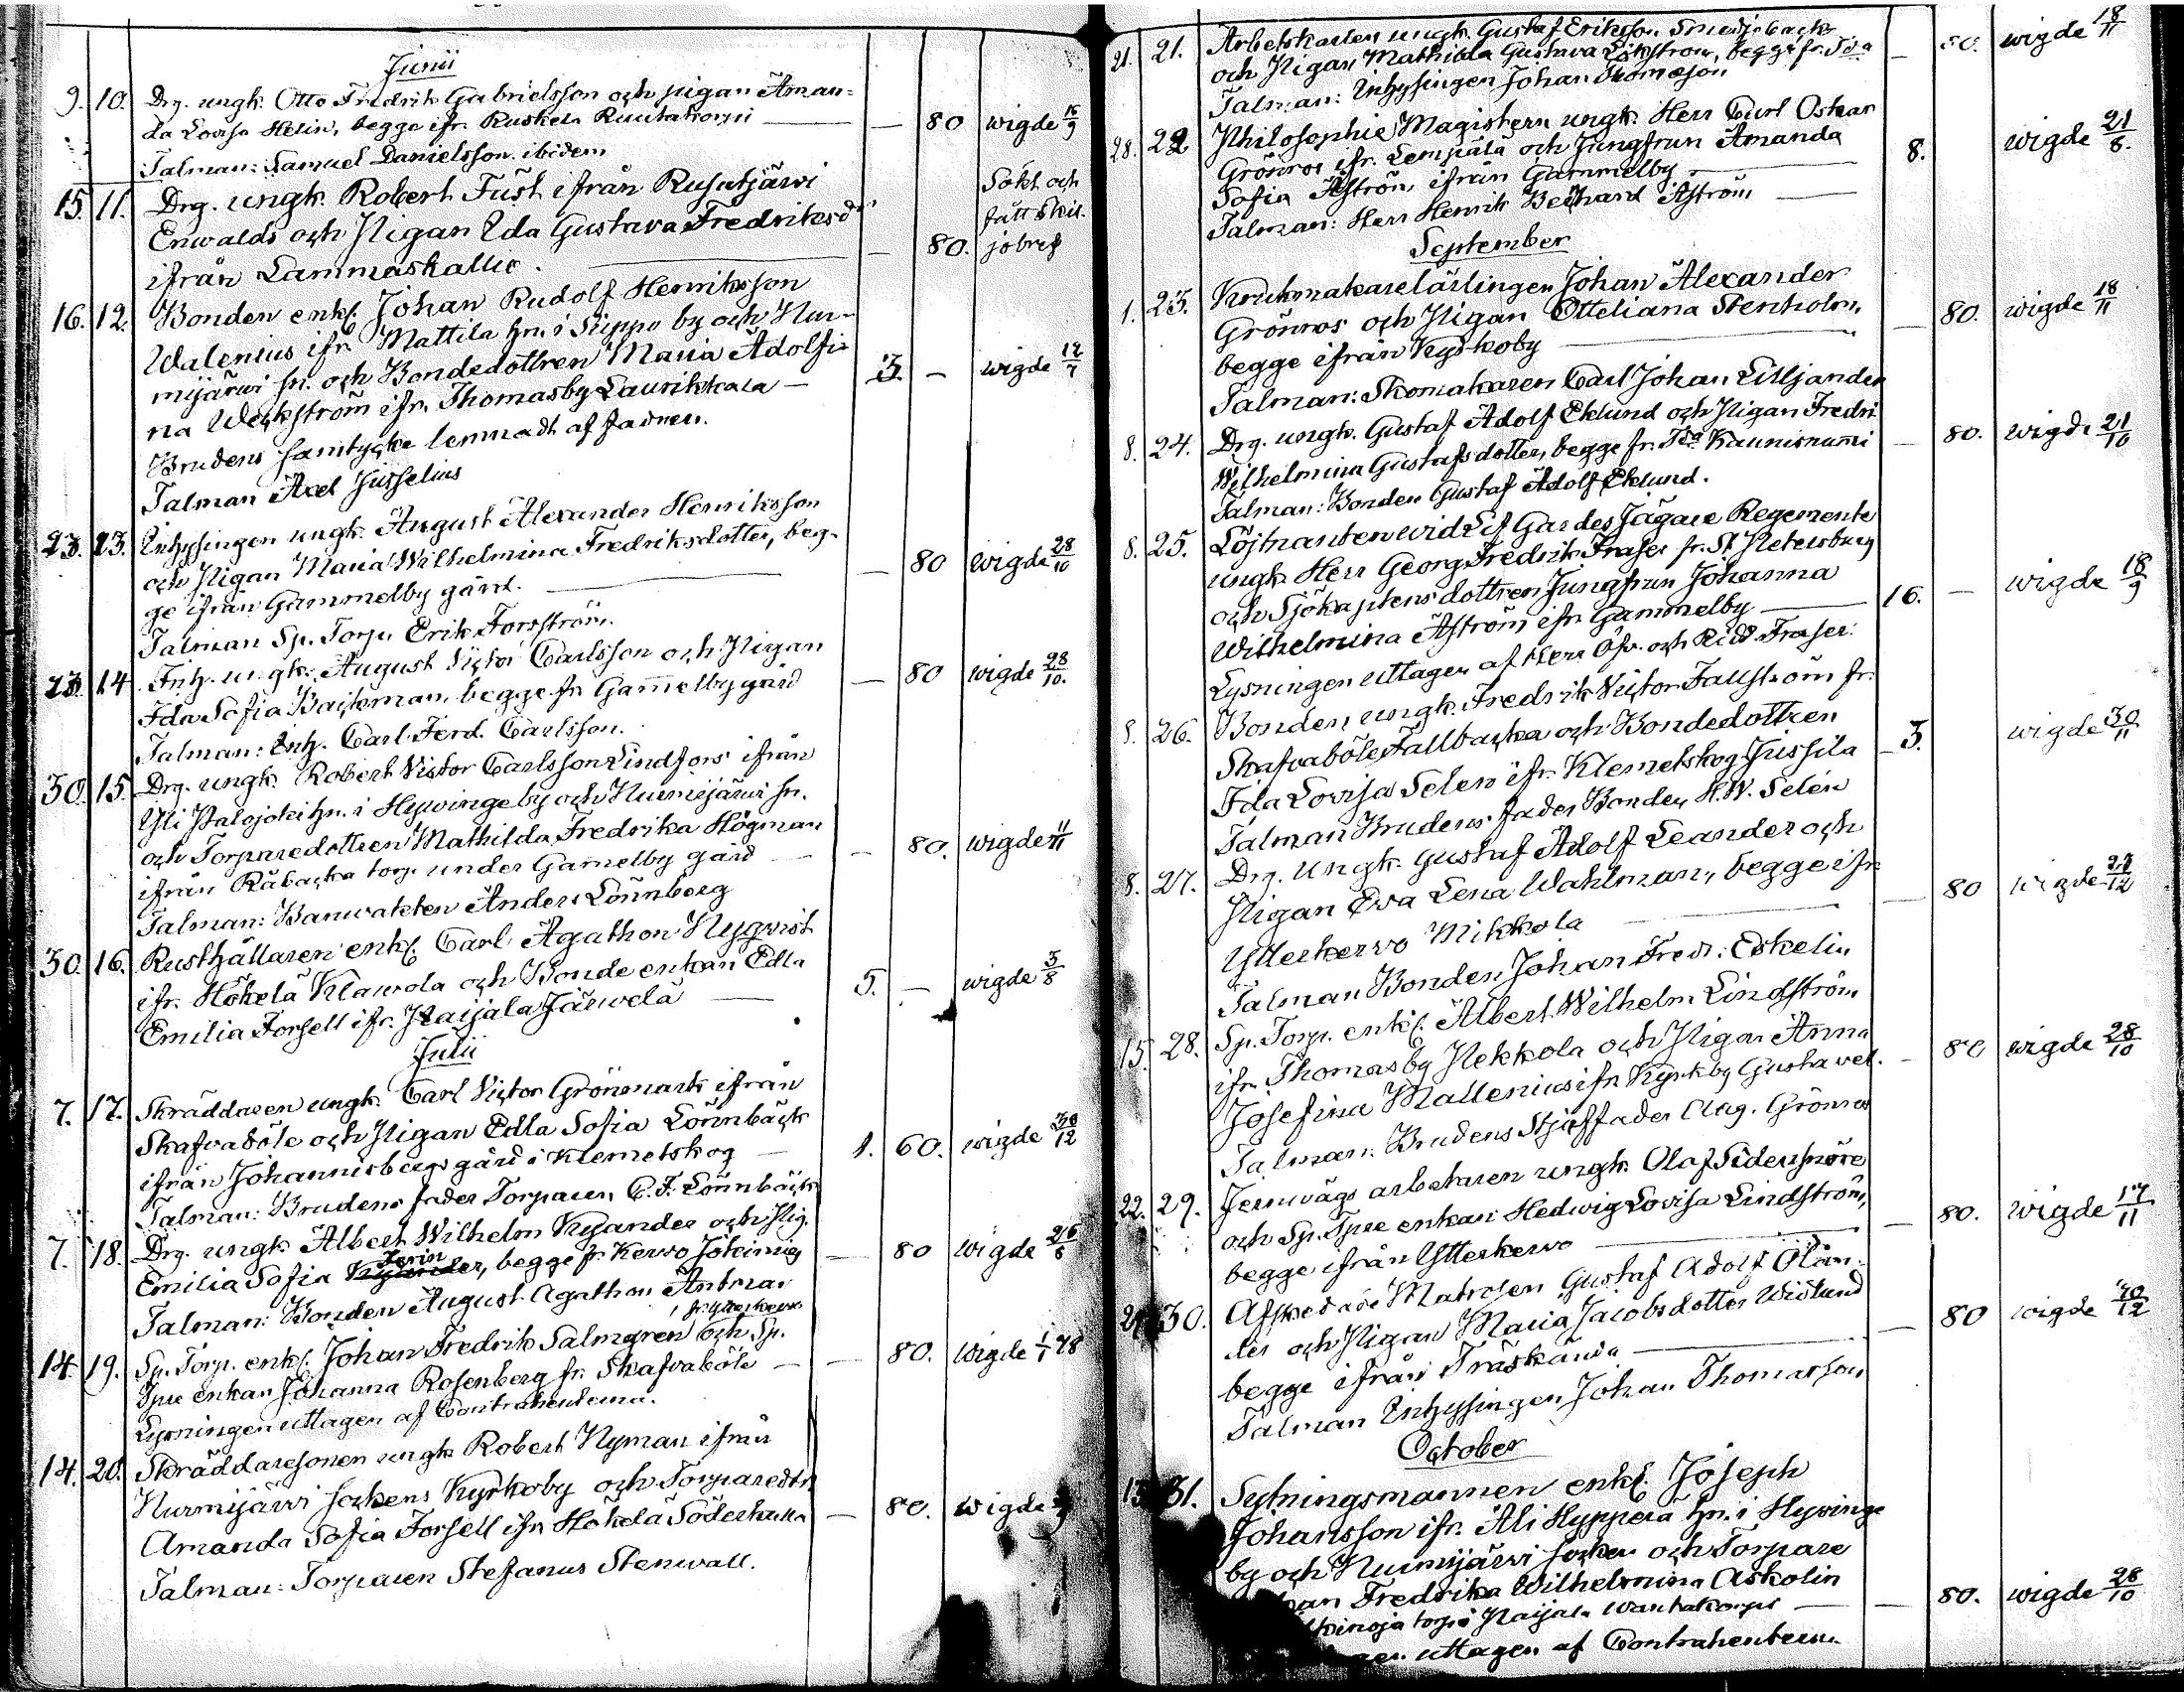 Junii
9. 10. Drg. ungk. Otto Fredrik Gabrielsson och pigan Aman=
da Lovisa Helin, begge ifr. Ruskela Ruutakorpi — — 80 wigde 16/9
Talman: Samuel Danielsson ibidem
15. 11. Drg. ungk. Robert Fust ifrån Rusutjärwi Sökt och
Enwalds och Pigan Ida Gustava Fredriksdr fått Skil-
ifrån Lammaskallio. — — 80. jobref
16. 12. Bonden enkl. Johan Rudolf Henriksson
Walenius ifr. Mattila hn. i Suppo by och Nur-
mijärwi sn. och Bondedottren Maria Adolfi-
na Weckström ifr. Thomasby Laurikkala — 3. — wigde 12/7
Brudens samtycke lemnadt af fadren.
Talman Axel Jusselius
23. 13. Inhysingen ungk. August Alexander Henriksson
och Pigan Maria Wilhelmina Fredriksdotter, beg-
ge ifrån Gammelby gård. — — 80 wigde 28/10
Talman Sp. Torp. Erik Forsström.
23. 14 Inh. ungk. August Victor Carlsson och Pigan
Ida Sofia Backman, begge fr. Gam̄elby gård — 80 wigde 28/10.
Talman: Inh. Carl Ferd. Carlsson.
30. 15. Drg. ungk. Robert Victor Carlsson Lindfors ifrån
Yli Palojoki hn. i Hywinge by och Nurmijärwi sn.
och Torparedottren Mathilda Fredrika Högman
ifrån Råbacka torp under Gamelby gård — — 80. wigde 11/11
Talman: Banwakten Anders Lönnberg
30. 16. Rusthållaren enkl. Carl Agathon Nyqwist
ifr. Hökelä Klawola och Bonde enkan Edla
Emilia Forsell ifr. Paijala Järwelä — 5. — wigde 5/8
Julii
7. 17. Skräddaren ungk. Carl Victor Grönmark ifrån
Skafvaböle och Pigan Edla Sofia Lönnbäck
ifrån Johannisbergs gård i Klemetskog — 1. 60. wigde 30/12
Talman: Brudens fader Torparen C. F. Lönnbäck
7. 18. Drg. ungk. Albert Wilhelm Kyander och Pig.
Emilia Sofia Kyander, begge fr. Kerwo Jokimies — 80 wigde 26/8
Talman: Bonden August Agathon Antman
fr. Ytterkerwo
14. 19. Sp. Torp. enkl. Johan Fredrik Salmgren och Sp.
Tpre enkan Johanna Rosenberg fr. Skafvaböle — — 80. wigde 1/1 78
Lysningen uttagen af Contrahenterna.
14. 20. Skräddaresonen ungk. Robert Nyman ifrån
Nurmijärwi sockens Kyrkoby och Torparedtr
Amanda Sofia Forsell ifr. Hökelä Söderkulla — 80. wigde
Talman: Torparen Stefanus Stenwall.
21. 21. Arbetskarlen ungk. Gustaf Eriksson Smedjebacka
och Pigan Mathilda Gustava Ekström, begge fr. Träs — 80. wigde 18/11
Talman: Inhysingen Johan Thomasson
28. 22 Philosophie Magistern ungk. Herr Carl Oskar
Grönros ifr. Lempälä och Jungfrun Amanda
Sofia Åström ifrån Gammelby — 8. wigde 21/8.
Talman: Herr Henrik Berhard Åström —
September
1. 23. Krukmakarelärlingen Johan Alexander
Grönros och Pigan Otteliana Stenholm,
begge ifrån Kyrkoby — — 80. wigde 18/11
Talman: Skomakaren Carl Johan Liljander
8. 24. Drg. ungk. Gustaf Adolf Eklund och Pigan Fredr.
Wilhelmina Gustafsdotter, begge fr. Träs Kaunisnum̄i — 80. wigde 21/10
Talman: Bonden Gustaf Adolf Eklund.
8. 25. Löjtnanten wid Lif Gardes Jägare Regemente
ungk. Herr Georg Fredrik Fraser fr. St Petersburg
och Sjökaptens dottren Jungfrun Johanna
Wilhelmina Åström ifr. Gammelby — 16. — wigde 18/9
Lysningen uttagen af Herr Öfv. och Ridd. Fraser.
8. 26. Bonden ungk. Fredrik Victor Fallström fr.
Skafvaböle Fallbacka och Bondedottren
Ida Lovisa Selen ifr. Klemetskog Jussila — 3. wigde 30/11
Talman Brudens fader Bonden H. W. Selén
8. 27. Drg. Ungk. Gustaf Adolf Leander och
Pigan Eva Lena Wahlman, begge ifr.
Ytterkerwo Mikkola — — 80 wigde 27/12
Talman Bonden Johan Fredr. Eskelin
15. 28. Sp. Torp. enkl. Albert Wilhelm Lindström
ifr. Thomasby Pekkola och Pigan Anna
Josefina Mallenius ifr. Kyrkby Gustavel. — 80 wigde 28/10
Talman: Brudens Stjuffader Aug. Grönros
22. 29. Jernvägs arbetaren ungk. Olaf Sidensnöre
och Sp. Tpre enkan Hedwig Lovisa Lindström,
begge ifrån Ytterkerwo — — 80. wigde 17/11
29. 30. Afskedade Matrosen Gustaf Adolf Ölan-
der och Pigan Maria Jacobsdotter Widlund
begge ifrån Träskända — — 80 wigde 30/12
Talman Inhysingen Johan Thomasson
October
13. 31. Sytningsmannen enkl. Joseph
Johansson ifr. Ali Hyppera hn. i Hywinge
by och Nurmijärwi socken och Torpare
Fredrika Wilhelmina Askolin
torp i Paijala Wantakorpi — — 80. wigde 28/10
uttagen af Contrahenterna.